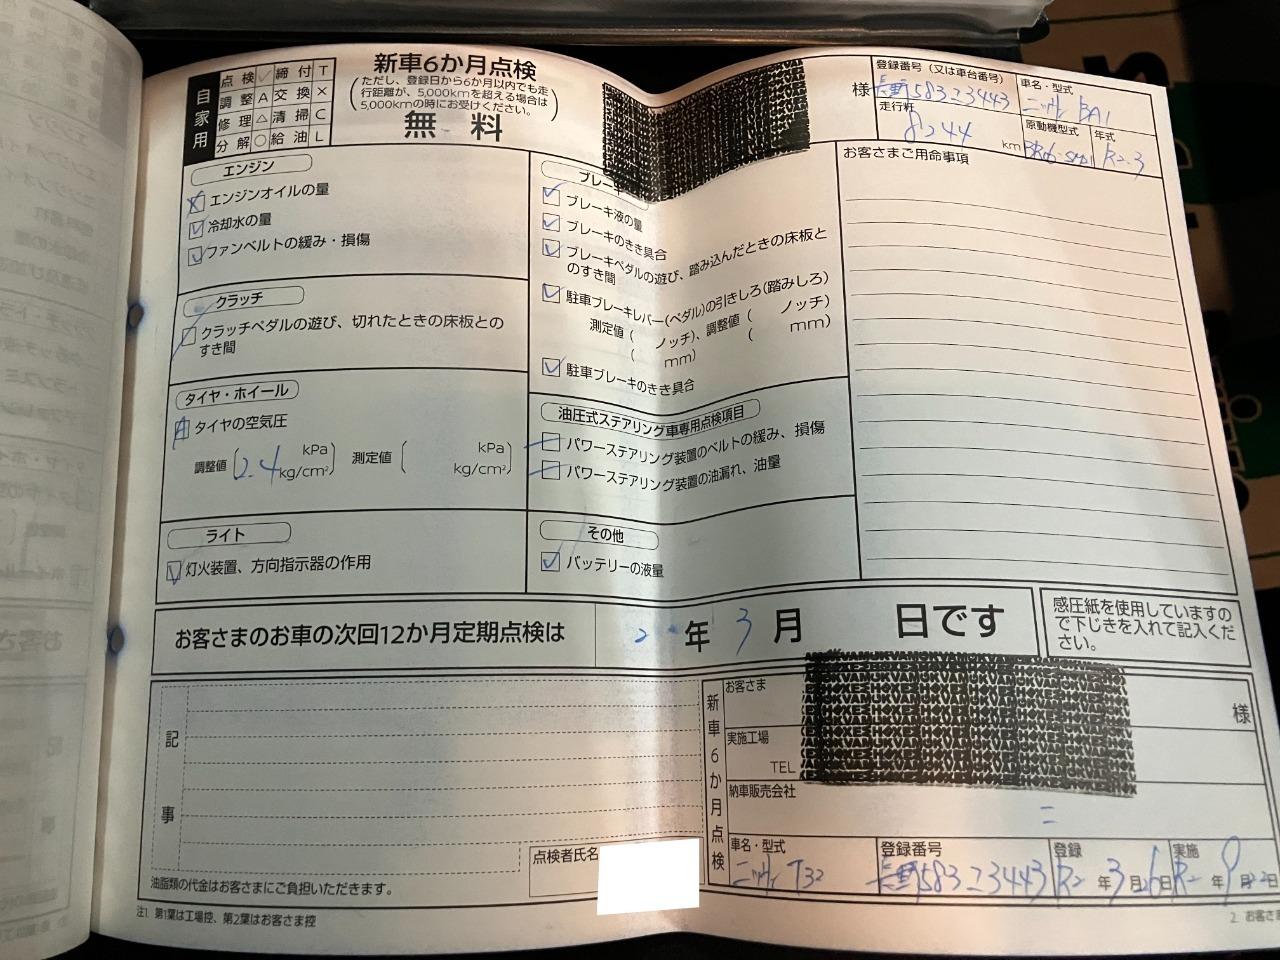 自家用
点検 ✓ 締付 T
調整 A 交換 ×
修理 △ 清掃 C
分解 ○ 給油 L
新車6か月点検
(ただし、登録日から6か月以内でも走
行距離が、5,000kmを超える場合は
5,000kmの時にお受けください。)
無 料
様
登録番号 (又は車台番号)
長野583こ3443
車名・型式
ニッサン
走行粁
8244
km
原動機型式
年式
R2-3
エンジン
エンジンオイルの量
冷却水の量
ファンベルトの緩み・損傷
クラッチ
クラッチペダルの遊び、切れたときの床板との
すき間
タイヤ・ホイール
A タイヤの空気圧
調整値 ( 2.4 kPa kg/cm² ) 測定値 ( kPa kg/cm² )
ライト
灯火装置、方向指示器の作用
ブレーキ
ブレーキ液の量
ブレーキのきき具合
ブレーキペダルの遊び、踏み込んだときの床板と
のすき間
駐車ブレーキレバー(ペダル)の引きしろ(踏みしろ)
測定値 ( ノッチ)、調整値 ( ノッチ)
( mm) ( mm)
駐車ブレーキのきき具合
油圧式ステアリング車専用点検項目
パワーステアリング装置のベルトの緩み、損傷
パワーステアリング装置の油漏れ、油量
その他
バッテリーの液量
お客さまご用命事項
お客さまのお車の次回12か月定期点検は
年 3 月 日です
感圧紙を使用していますの
で下じきを入れて記入くだ
さい。
記事
点検者氏名
油脂類の代金はお客さまにご負担いただきます。
注1. 第1葉は工場控、第2葉はお客さま控
新車6か月点検
お客さま
様
実施工場
TEL
納車販売会社
車名・型式
ニッサン T32
登録番号
長野583こ3443
登録
R2 年 3 月 26 日
実施
R2 年 9 月 22 日
2. お客さま